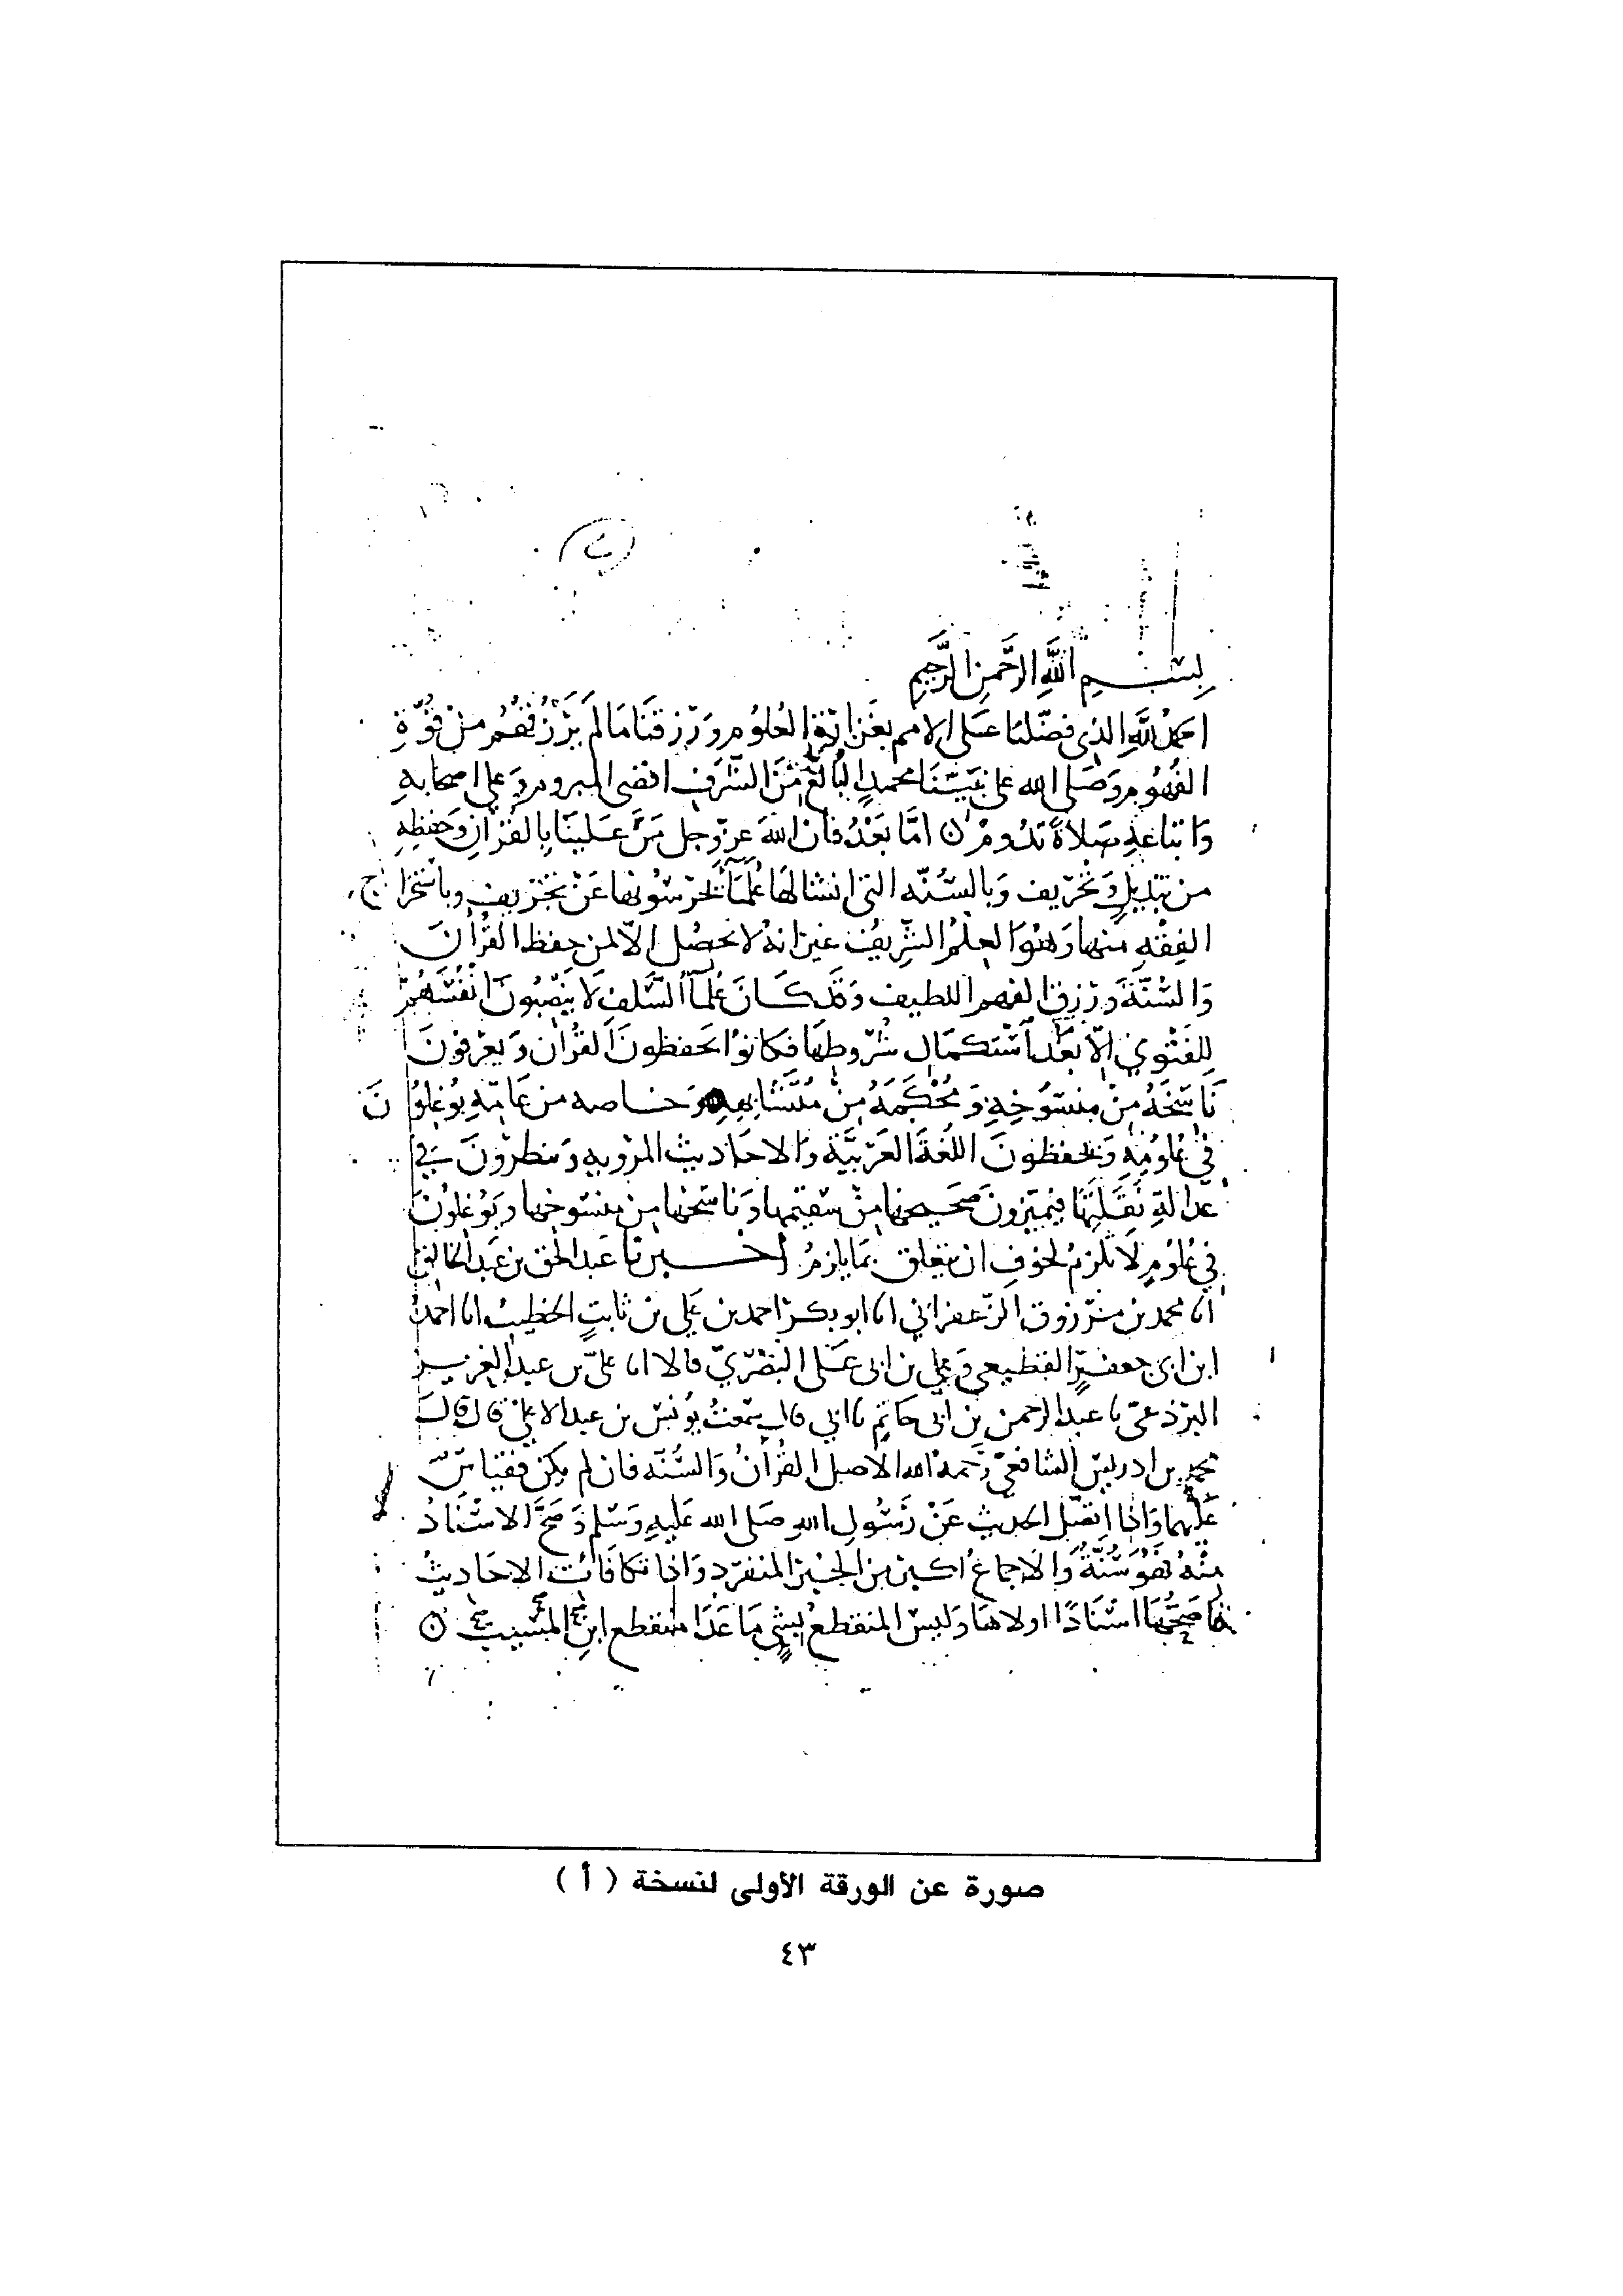 بِسْمِ اللَّهِ الرَّحْمنِ الرَّحِيمِ
الحمدُ للَّهِ الذي فضّلنا على الامم بغزارة العُلوُم ورَزقنَا مَا لَم يَرْزُقهُم من قُوّةِ
الفُهُوم وصَلى الله على نبيّنَا محمدٍ البالغ مِنَ الشرَفِ اقصى المروم وعلى اصحابه
وَاتباعهِ صَلاةً تدُومُ ن امّا بَعْدُ فان اللهَ عزّ وجل مَنَّ عَلينَا بِالقُرْآنِ وَحفظِهِ
من تبديلٍ وَتحْريف وَبالسُنّه التى انشا لهَا عُلمَآءَ يحرسُونها عَنْ تخريف وباسْتخرَاج
الفِقْهِ منها وَهوَ العِلمُ الشريفُ غير انهُ لا يحصُل الّا لمن حفظ القُرآنَ
وَالسُنَّةَ ورُزِقَ الفهم اللطيف وَقَد كَانَ عُلمآ السَّلفِ لَا ينْصِبُونَ انفُسَهُمْ
لِلفَتْوى الّا بَعْد اسْتكمال شُرُوطِهَا فكانوُا يحفظونَ القُرآن وَيعْرفونَ
نَاسِخَهُ مِنْ منسُوخِهِ وَمُحْكَمَهُ مِنْ مُتَشَابِهِهِ وَخاصه من عَامّهِ يوُغلُونَ
في عُلوُمِهِ وَيحفظونَ اللُغةَ العَربيَّةَ وَالاحَاديث المرْويه وَينظرُونَ في
عدالةِ نَقَلتِهَا فيُميّزونَ صَحيحها مِنْ سَقيمها وَناسخها من منسُوخها وَيُوغلُونَ
في عُلوُمٍ لَا تلزمُ لخوفِ ان يتعلق بمَا يلزمُ اخــبرنا عَبد الحق بن عَبد الخالق
انا محمد بن مَرْزوق الزعفرَاني انا ابو بكر احمد بن عَلي بن ثابتٍ الخطيب انا احمدُ
ابن ابى جعفرٍ القطيعي وَعلي بن ابى عَلى البَصْرىّ قالا انا علىّ بن عبد العزيز
البرذعىّ نا عبد الرحمن بن ابى حَاتِم نا ابى قال سَمعتُ يُونسَ بن عبد الاعلى قال قال
محمد بن ادريس الشافعىّ رَحمهُ الله الاصل القُرآنُ وَالسُّنّه فان لم يكن فقياسٌ
عَليهما وَاذا اتصَل الحديث عَنْ رَسُولِ الله صَلى الله عَليهِ وَسَلم وَصَحَّ الاسْنَادُ
مِنْهُ فهُوَ سُنَّةٌ وَالاجماعُ اكبر من الخبر المنفرد وَاذا تكافَات الاحَاديثُ
فاصَحُّهَا اسْنَادًا اولاهَا وَليسَ المنقطعُ بشىٍ مَا عَدَا منقطع ابنِ المسَيب ن
صورة عن الورقة الأولى لنسخة ( أ )
٤٣